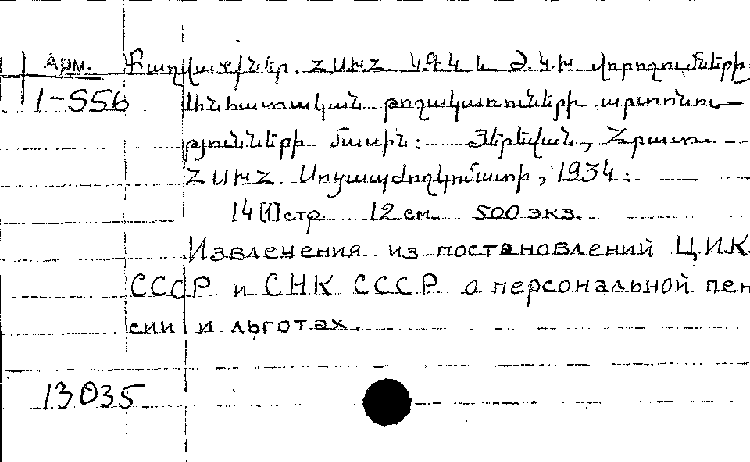 Арм. Քաղվածքներ. ՀՍԽՀ ԿԳԿ և Ժ.Կ.Խ վորոշումների
1-556 Անհատական թոշակառուների արտոնու-
թյունների մասին: Յերևան, Հրատ.
ՀՍԽՀ. Սոցապժողկոմատի, 1934:
14[1]стр 12 см. 500 экз.
Извлечения из постановлений ЦИК
СССР и СНК СССР о персональной пен
сии и льготах.
13035